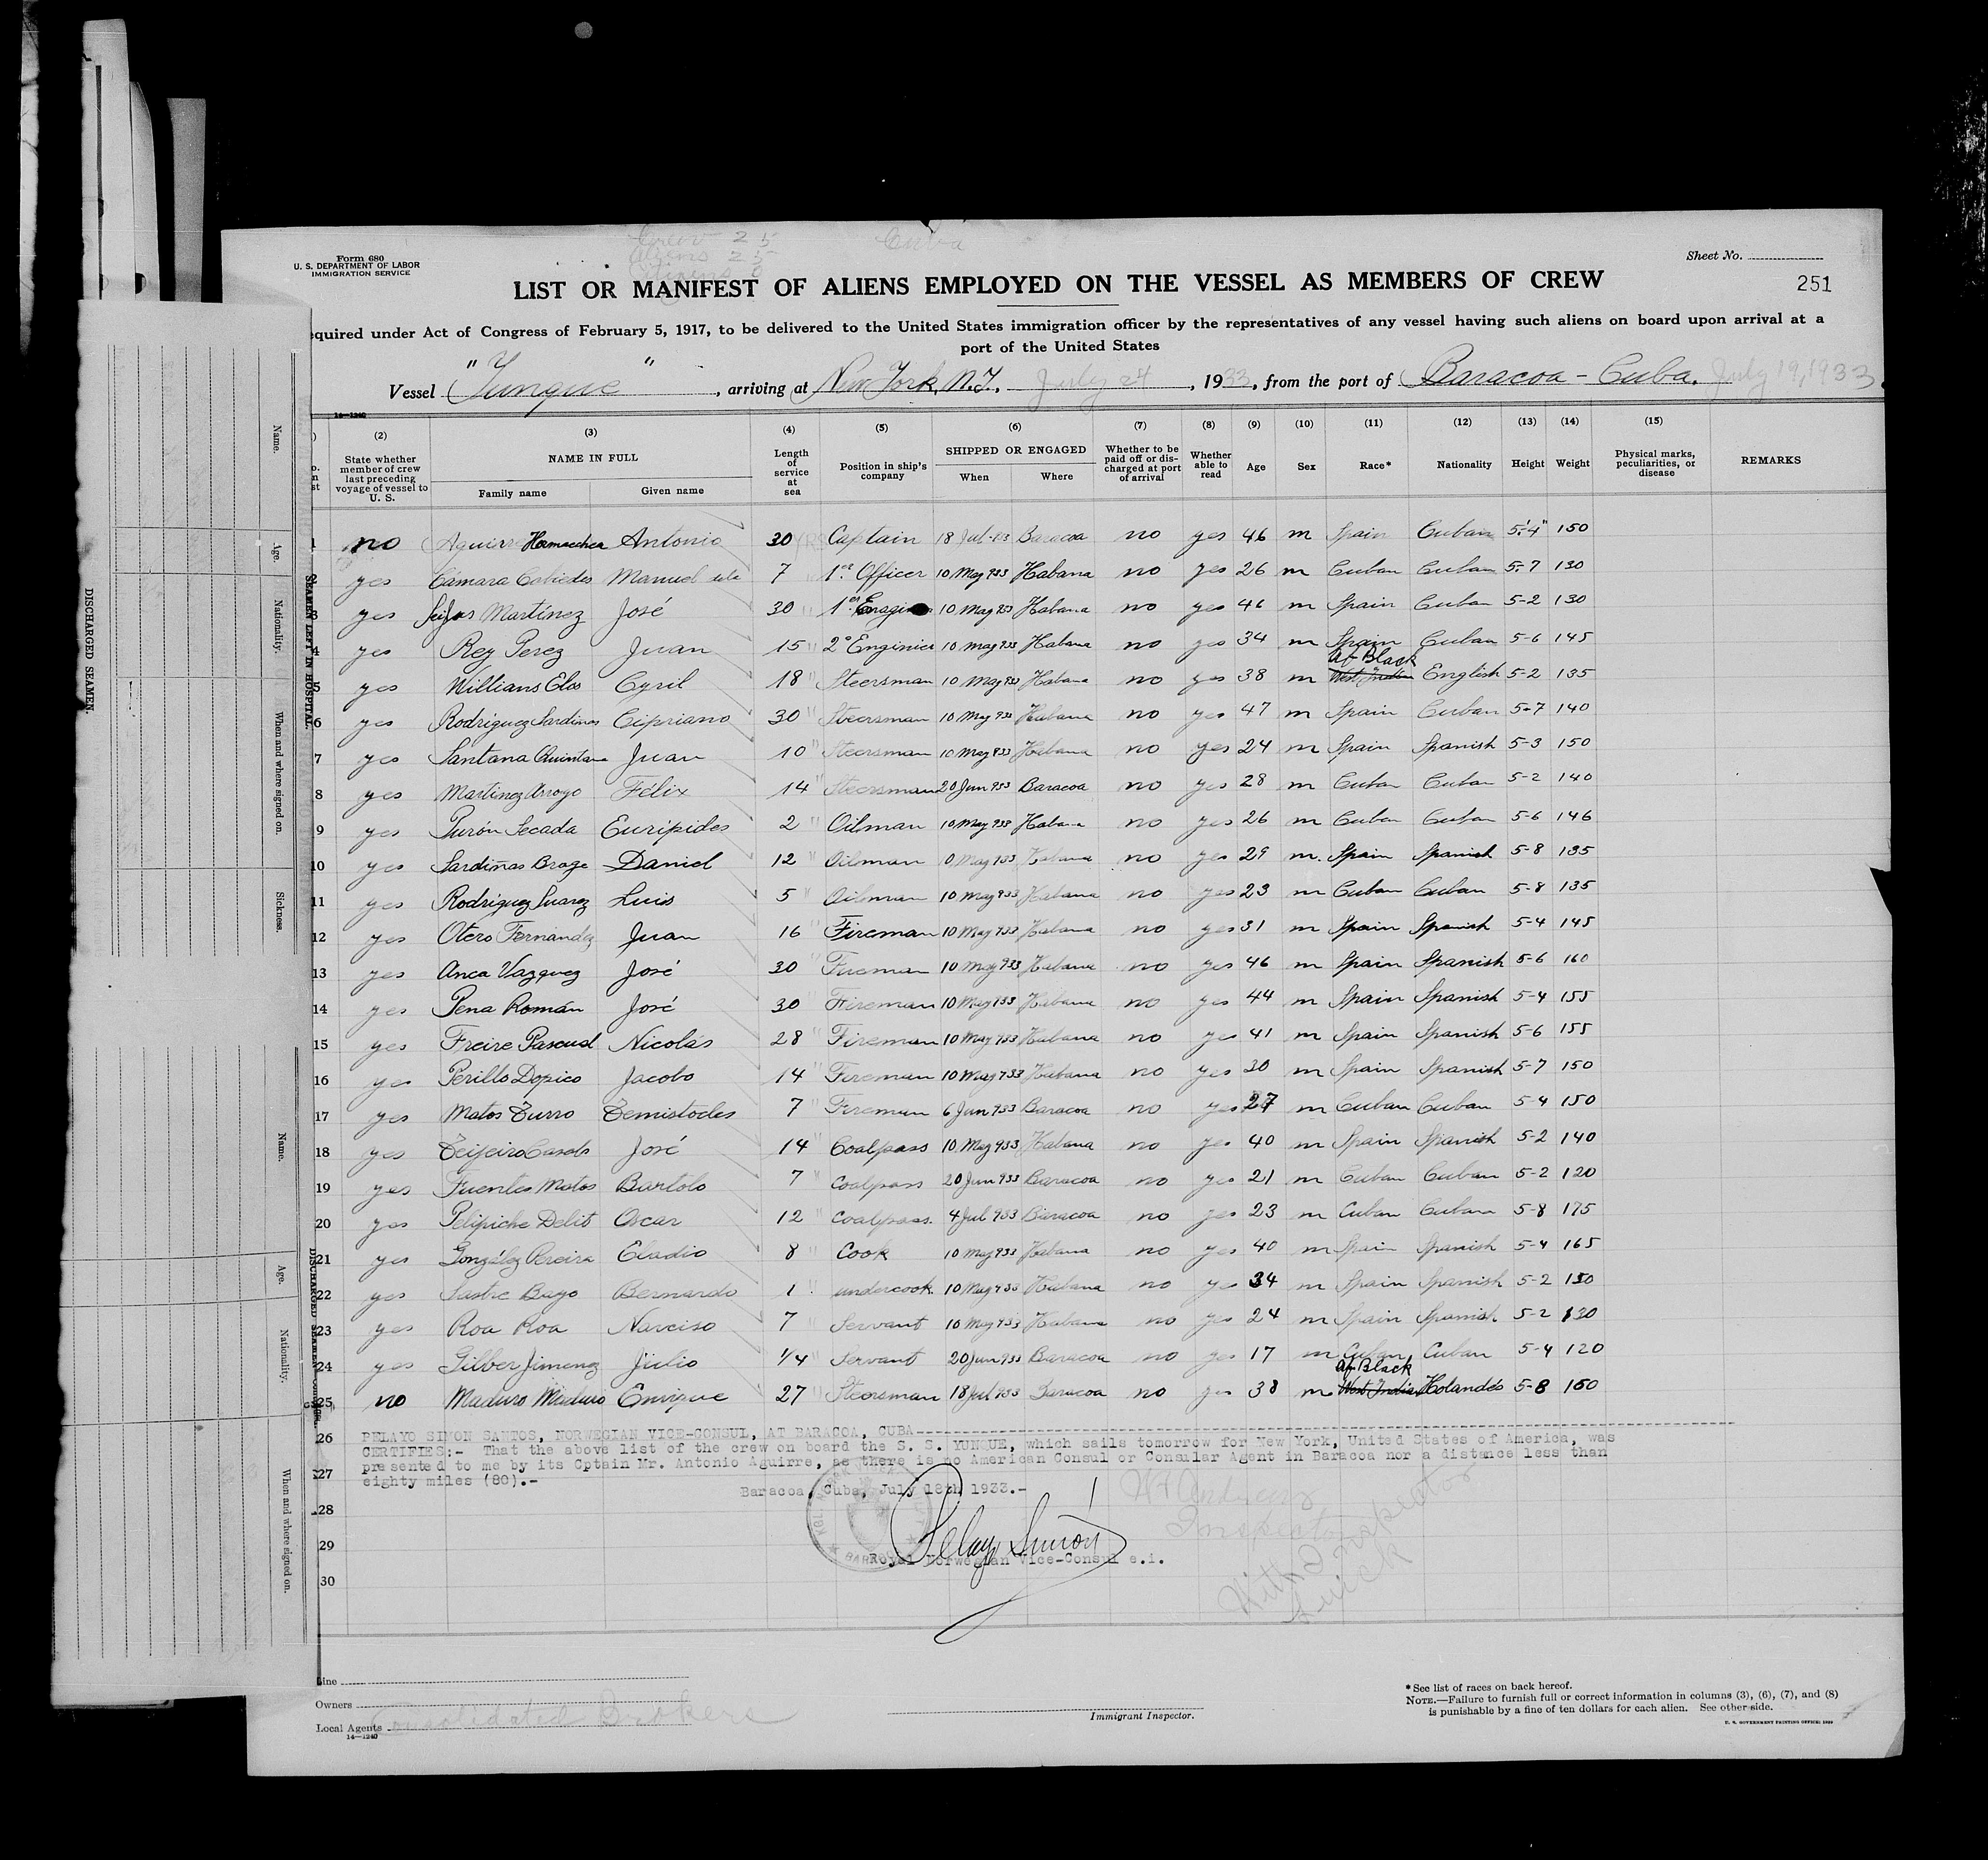 Crew 25 Cuba
Aliens 25
Citizens 0
Form 680
U. S. DEPARTMENT OF LABOR
IMMIGRATION SERVICE
Sheet No.
LIST OR MANIFEST OF ALIENS EMPLOYED ON THE VESSEL AS MEMBERS OF CREW
251
equired under Act of Congress of February 5, 1917, to be delivered to the United States immigration officer by the representatives of any vessel having such aliens on board upon arrival at a
port of the United States
Vessel "Yunque", arriving at New York, N.Y., July 24, 1933, from the port of Baracoa - Cuba. July 19, 1933.
14—1240
(2) (3) (4) (5) (6) (7) (8) (9) (10) (11) (12) (13) (14) (15)
State whether member of crew last preceding voyage of vessel to U. S. NAME IN FULL Family name Given name Length of service at sea Position in ship's company SHIPPED OR ENGAGED When Where Whether to be paid off or discharged at port of arrival Whether able to read Age Sex Race* Nationality Height Weight Physical marks, peculiarities, or disease REMARKS
1 no Aguirre Antonio 30 Captain 18 Jul Baracoa no yes 46 m Spain Cuban 5'.4" 150
yes Cámara Cabiedes Manuel 7 1er Officer 10 May 933 Habana no yes 26 m Cuban Cuban 5.7 130
3 yes Seijas Martínez José 30 1er 10 May 933 Habana no yes 46 m Spain Cuban 5-2 130
4 yes Rey Perez Juan 15 " 2° Enginier 10 May 933 Habana no yes 34 m Spain Cuban 5-6 145
5 yes Willians Elos Cyril 18 " Steersman 10 May 933 Habana no yes 38 m Af-Black West Indian English 5-2 135
6 yes Rodriguez Sardinas Cipriano 30 " Steersman 10 May 933 Habana no yes 47 m Spain Cuban 5-7 140
7 yes Santana Quintana Juan 10 " Steersman 10 May 933 Habana no yes 24 m Spain Spanish 5-3 150
8 yes Martinez Arroyo Félix 14 " Steersman 20 Jun 933 Baracoa no yes 28 m Cuban Cuban 5-2 140
9 yes Purón Secada Eurípides 2 " Oilman 10 May 933 Habana no yes 26 m Cuban Cuban 5-6 146
10 yes Sardiñas Brage Daniel 12 " Oilman 10 May 933 Habana no yes 29 m. Spain Spanish 5-8 135
11 yes Rodriguez Suarez Luis 5 " Oilman 10 May 933 Habana no yes 23 m Cuban Cuban 5-8 135
12 yes Otero Fernandez Juan 16 " Fireman 10 May 933 Habana no yes 31 m Spain Spanish 5-4 145
13 yes Anca Vazquez José 30 " Fireman 10 May 933 Habana no yes 46 m Spain Spanish 5-6 160
14 yes Pena Román José 30 " Fireman 10 May 933 Habana no yes 44 m Spain Spanish 5-4 155
15 yes Freire Pascual Nicolás 28 " Fireman 10 May 933 Habana no yes 41 m Spain Spanish 5-6 155
16 yes Perillo Dopico Jacobo 14 " Fireman 10 May 933 Habana no yes 30 m Spain Spanish 5-7 150
17 yes Matos Turro Temistocles 7 " Fireman 6 Jun 933 Baracoa no yes 27 m Cuban Cuban 5-4 150
18 yes Teijeiro Casols José 14 " Coalpass 10 May 933 Habana no yes 40 m Spain Spanish 5-2 140
19 yes Fuentes Matos Bartolo 7 " Coalpass 20 Jun 933 Baracoa no yes 21 m Cuban Cuban 5-2 120
20 yes Pelipiche Delit Oscar 12 " Coalpass. 4 Jul 933 Baracoa no yes 23 m Cuban Cuban 5-8 175
21 yes González Pereira Eladio 8 " Cook 10 May 933 Habana no yes 40 m Spain Spanish 5-4 165
22 yes Sastre Bugo Bernardo 1 undercook 10 May 933 Habana no yes 34 m Spain Spanish 5-2 130
23 yes Roa Roa Narciso 7 " Servant 10 May 933 Habana no yes 24 m Spain Spanish 5-2 130
24 yes Gilber Jimenez Julio 1/4 " Servant 20 Jun 933 Baracoa no yes 17 m Cuban Cuban 5-4 120
25 no Maduro Maduro Enrique 27 " Steersman 18 Jul 933 Baracoa no yes 38 m Af-Black West Indian Holandés 5-8 160
26 PELAYO SIMON SANTOS, NORWEGIAN VICE-CONSUL, AT BARACOA, CUBA
CERTIFIES:- That the above list of the crew on board the S. S. YUNQUE, which sails tomorrow for New York, United States of America, was
27 presented to me by its Cptain Mr. Antonio Aguirre, as there is no American Consul or Consular Agent in Baracoa nor a distance less than
eighty miles (80).-
Baracoa, Cuba, July 18th 1933.-
28
29 Pelayo Simón
Inspector
Royal Norwegian Vice-Consul e.i.
With Inspector
30
Line
Owners
Local Agents Consolidated Brokers
14—1240
Immigrant Inspector.
* See list of races on back hereof.
NOTE.—Failure to furnish full or correct information in columns (3), (6), (7), and (8)
is punishable by a fine of ten dollars for each alien. See other side.
DISCHARGED SEAMEN.
SEAMEN LEFT IN HOSPITAL.
Name.
Age.
Nationality.
When and where signed on.
Sickness.
Name.
Age.
Nationality.
When and where signed on.